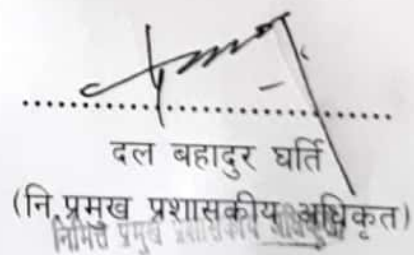 दल बहादुर घर्ति
(नि.प्रमुख प्रशासकीय अधिकृत)
निमित्त प्रमुख प्रशासकीय अधिकृत